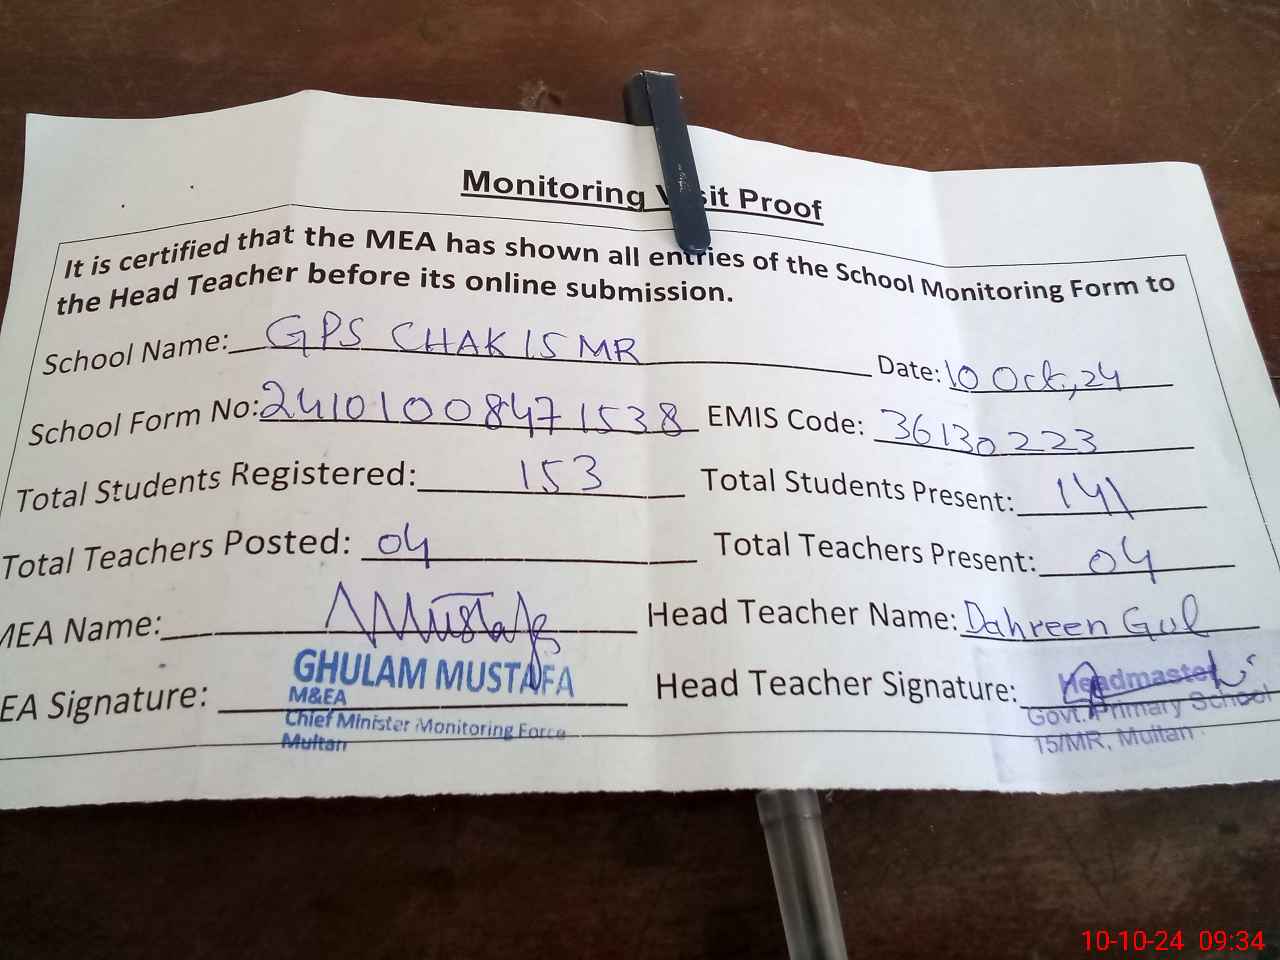 Monitoring Visit Proof
It is certified that the MEA has shown all entries of the School Monitoring Form to
the Head Teacher before its online submission.
School Name: GPS CHAK 15 MR Date: 10 Oct, 24
School Form No: 2410100847 1538 EMIS Code: 36130223
Total Students Registered: 153 Total Students Present: 141
Total Teachers Posted: 04 Total Teachers Present: 04
MEA Name: Mustafa Head Teacher Name: Dahreen Gul
EA Signature: Head Teacher Signature:
GHULAM MUSTAFA
M&EA
Chief Minister Monitoring Force
Multan
Headmaster
Govt. Primary School
15/MR, Multan
10-10-24 09:34